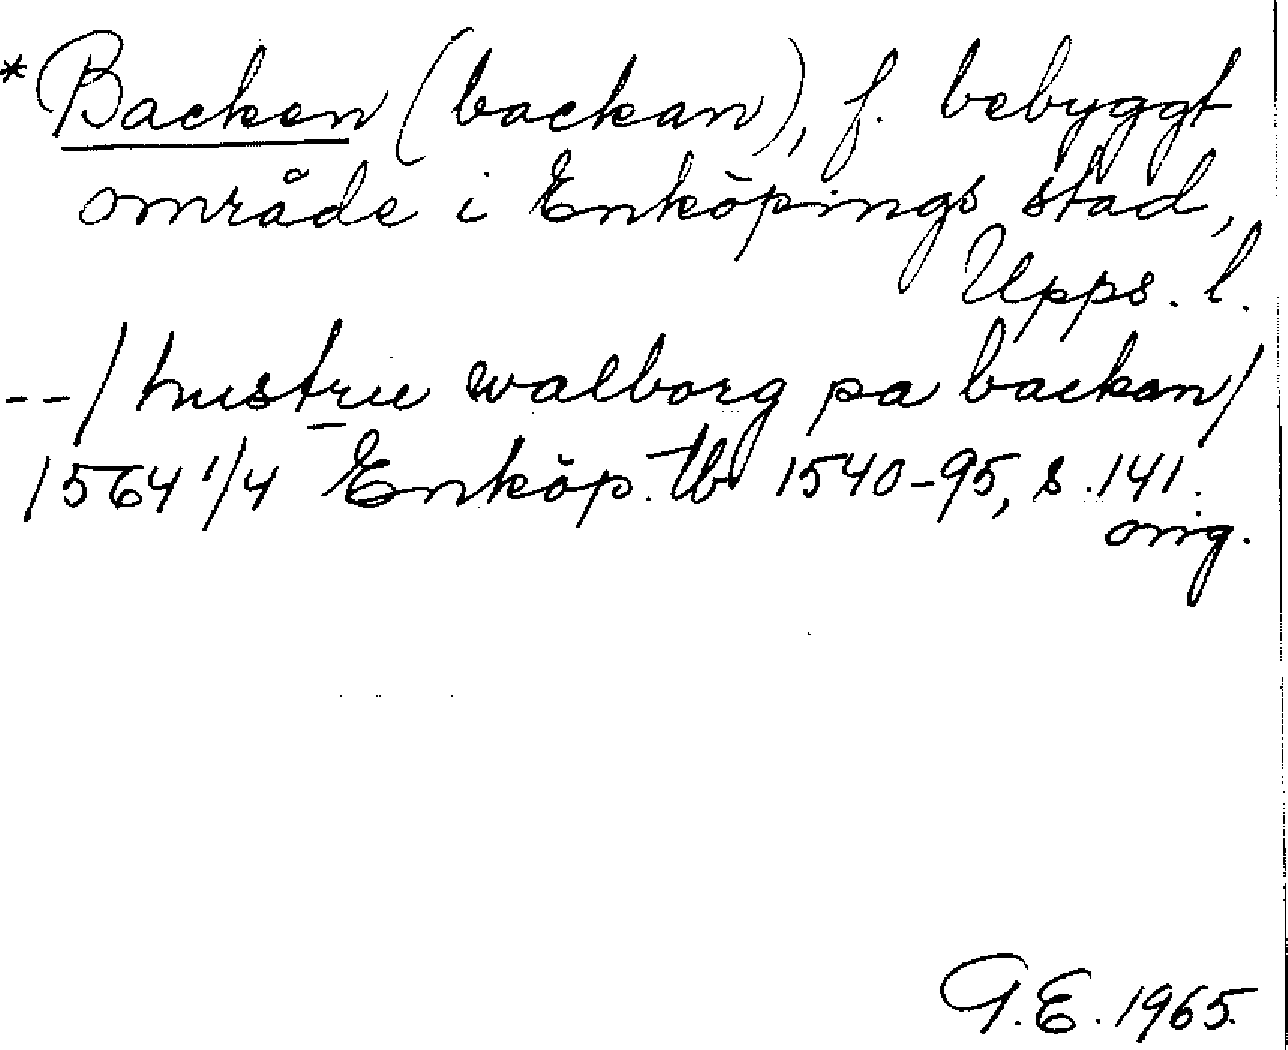 *Backen (backan), f. bebyggt
område i Enköpings stad,
Upps. l.
--/ hustrue walborg pa backan/
1564 1/4 Enköp. tb 1540-95, s. 141.
orig.
G.E. 1965.